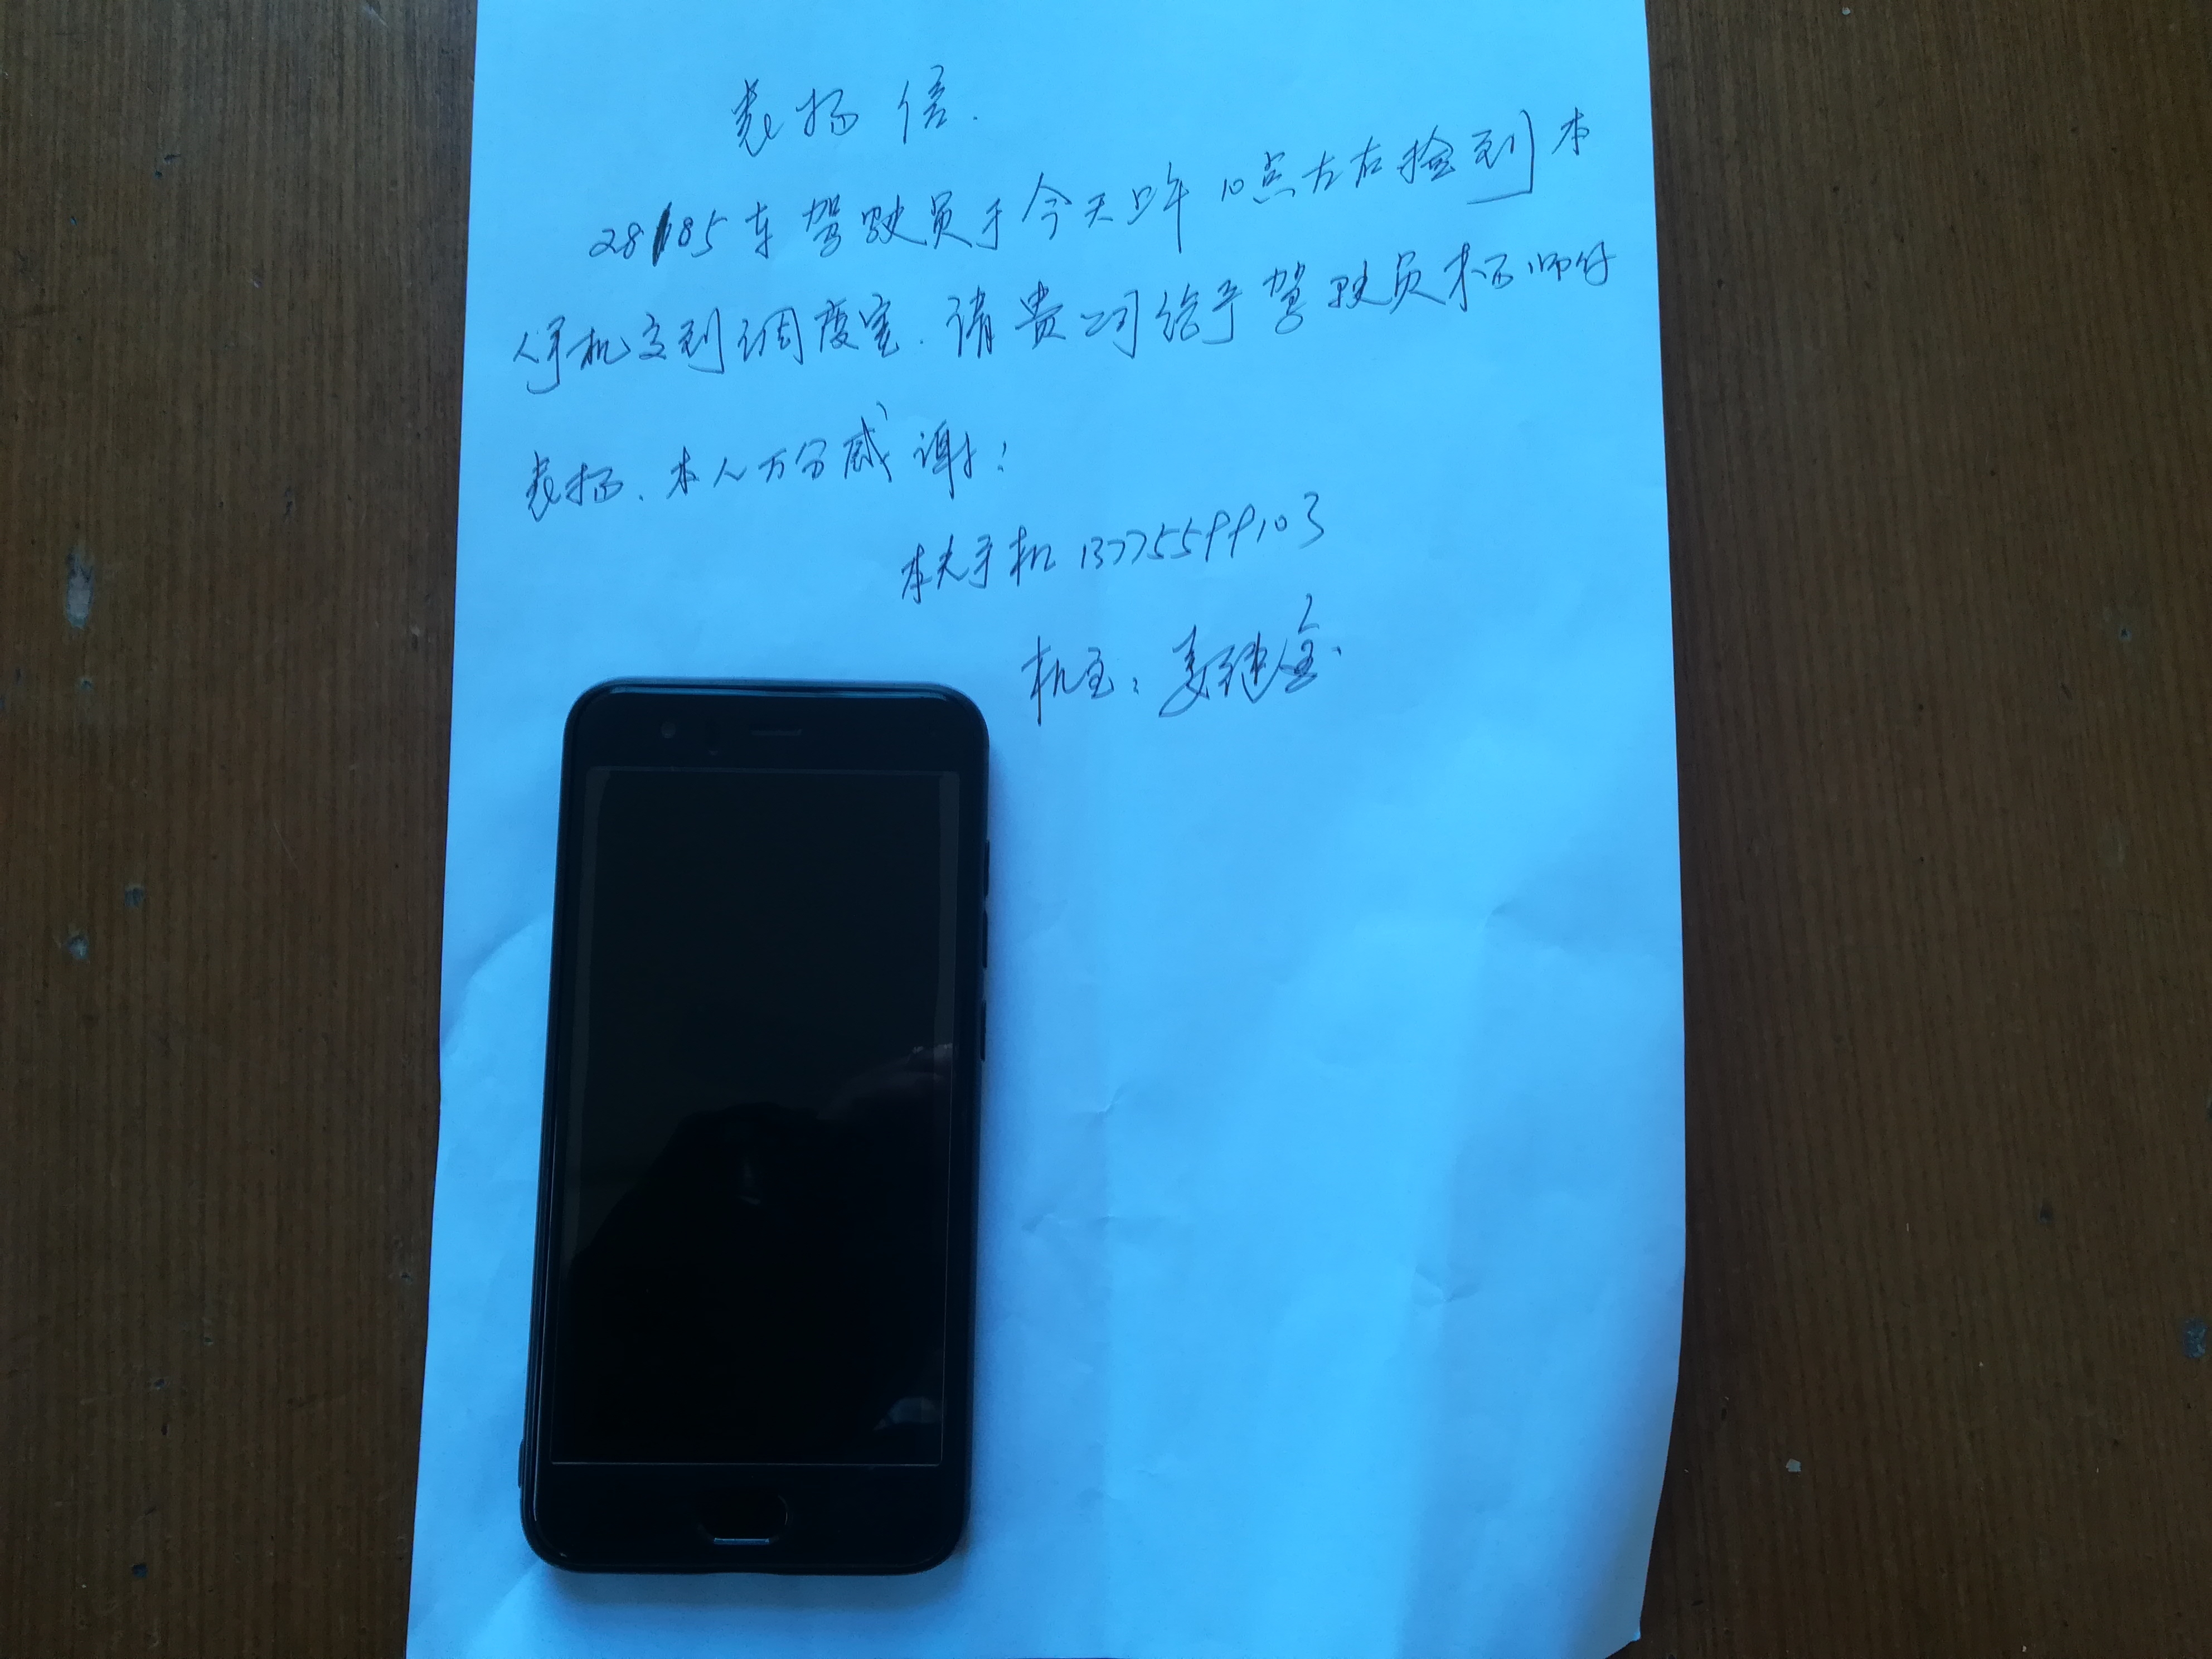 表扬信.
28185车驾驶员于今天上午10点左右捡到本
人手机交到调度室.请贵公司给予驾驶员 师付
表扬.本人万分感谢!
手机13775599103
机主:姜继金.